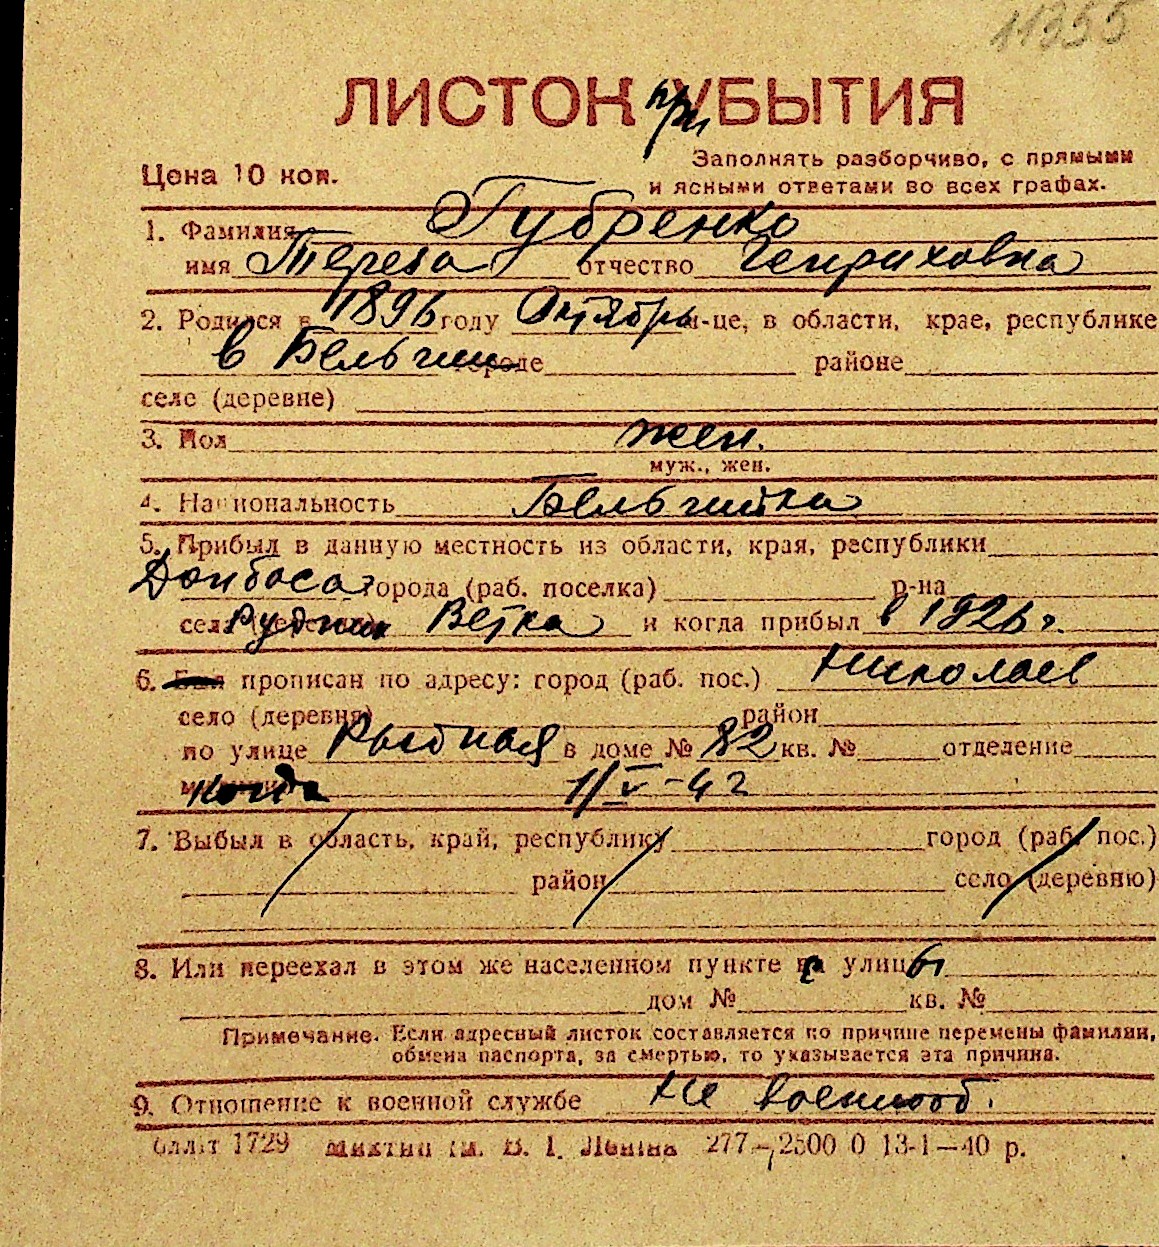 11355
ЛИСТОК при УБЫТИЯ
Цена 10 коп. Заполнять разборчиво, с прямыми
и ясными ответами во всех графах.
1. Фамилия Губренко
имя Тереза отчество Генриховна
2. Родился в 1896 году Октябрь м-це, в области, крае, республике
в Бельгии городе районе
селе (деревне)
3. Пол жен.
муж., жен.
4. Национальность Бельгийка
5. Прибыл в данную местность из области, края, республики
Донбаса города (раб. поселка) р-на
села Рудник Ветка и когда прибыл в 1926 г.
6. Был прописан по адресу: город (раб. пос.) Николаев
село (деревня) район
по улице Рыбная в доме № 82 кв. № отделение
когда 1/V-42
7. Выбыл в область, край, республику город (раб. пос.)
район село (деревню)
8. Или переехал в этом же населенном пункте с улицы
дом № кв. №
Примечание. Если адресный листок составляется по причине перемены фамилии,
обмена паспорта, за смертью, то указывается эта причина.
9. Отношение к военной службе не военнооб.
1729 им. В. І. Леніна 277—2500 0 13-1—40 р.